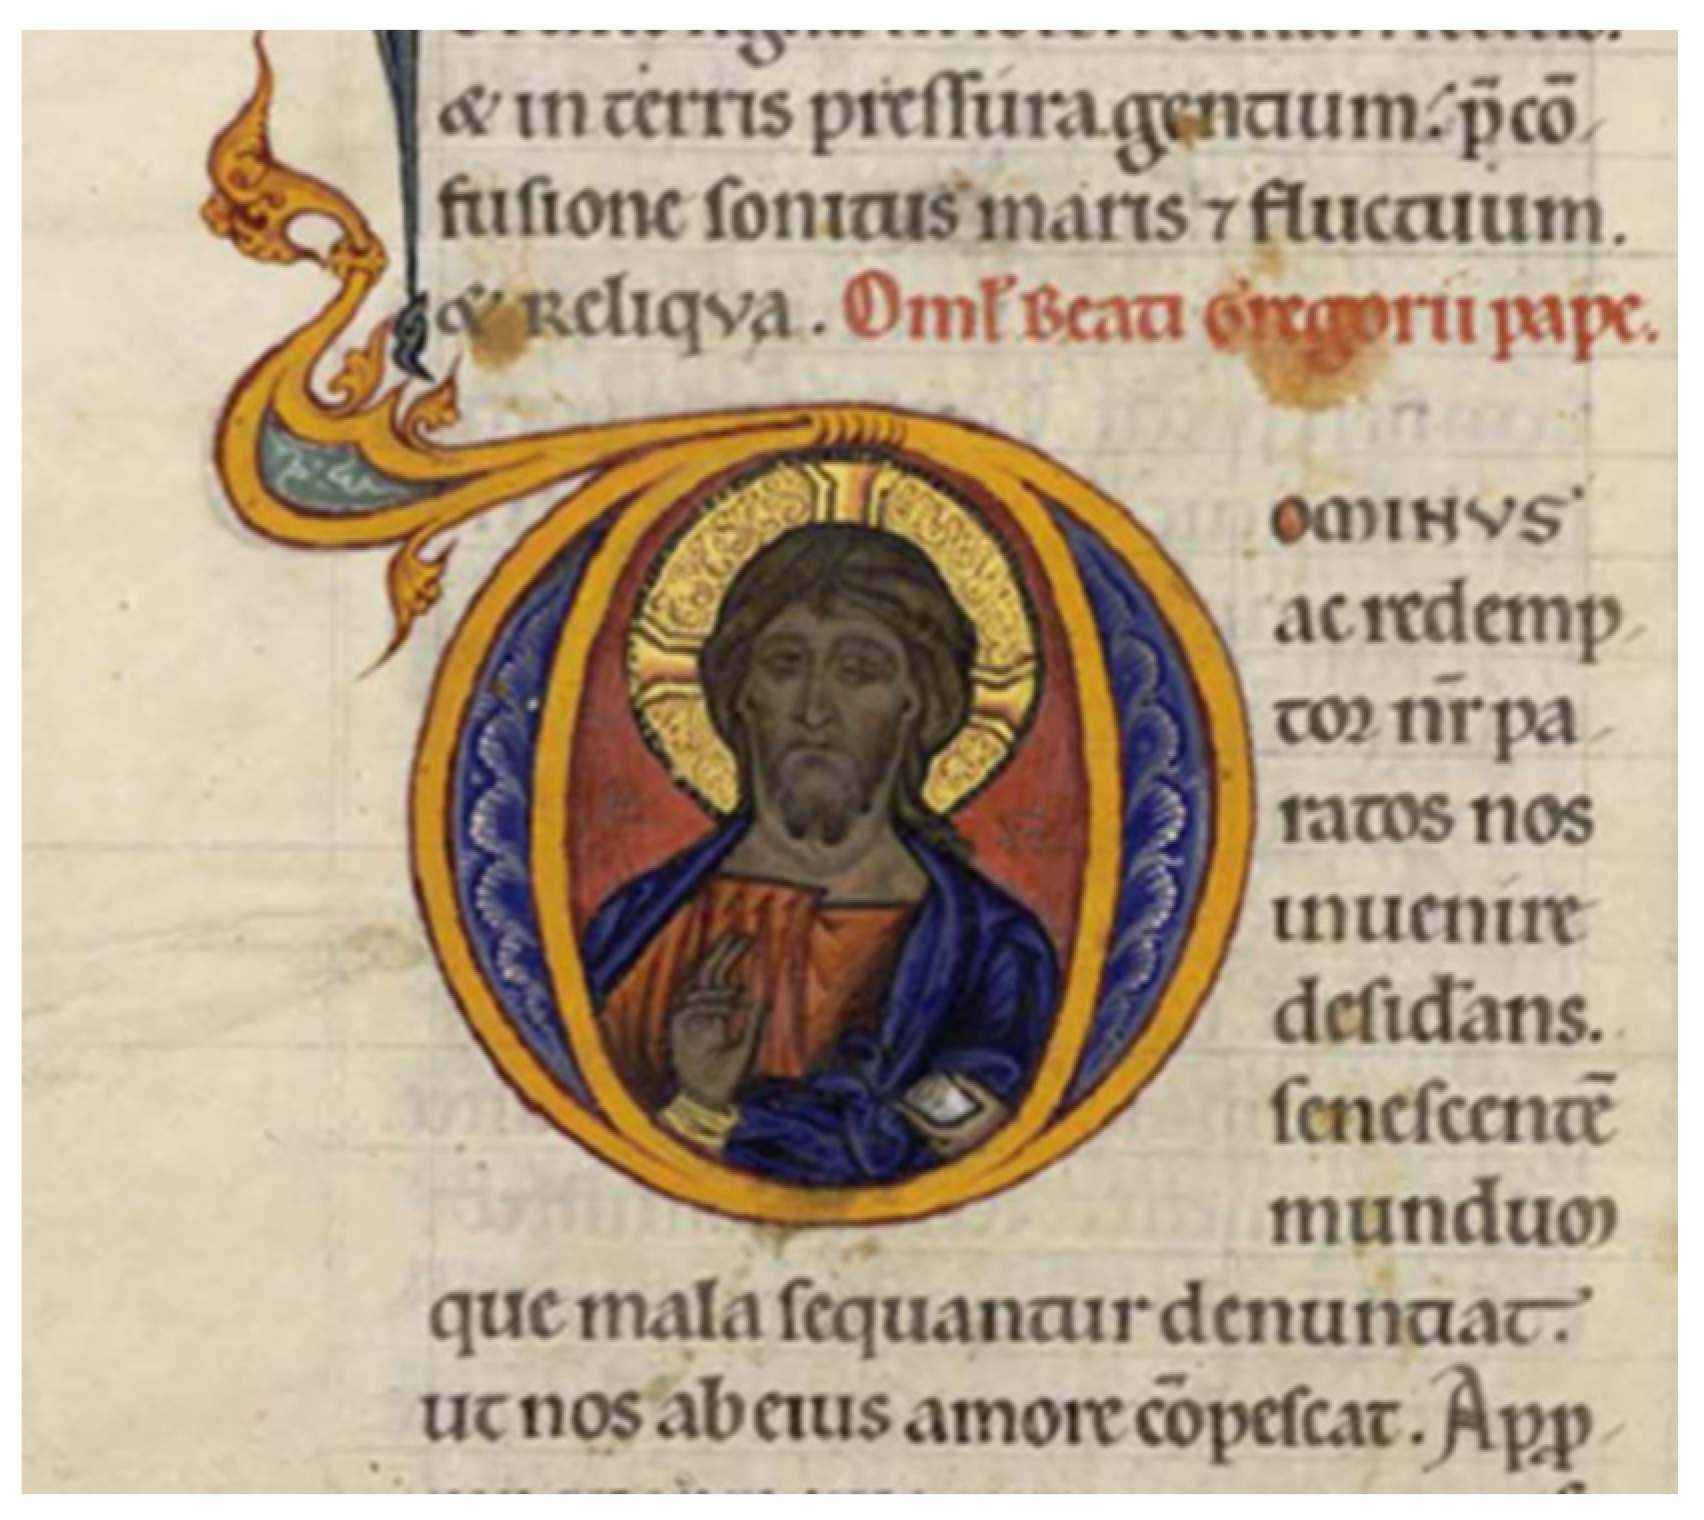 & in terris preſſura gentium. p̄ cō
fuſione ſonitus maris ⁊ fluctuum.
& reliqva. Omł Beati Gregorii pape.
DOMINVS
ac redemp
tor nr̄ pa
ratos nos
inuenire
deſid̄ans.
ſeneſcentē
mundum
que mala ſequantur denuntiat.
ut nos ab eius amore cōpeſcat. App